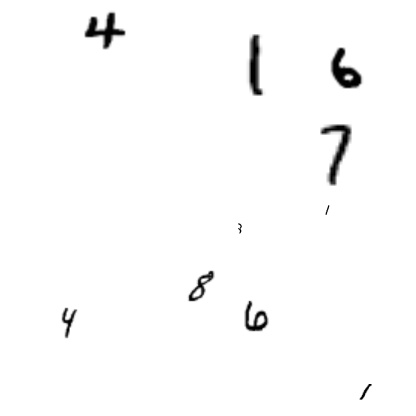 4
1 6
7
1
3
8
4 6
1